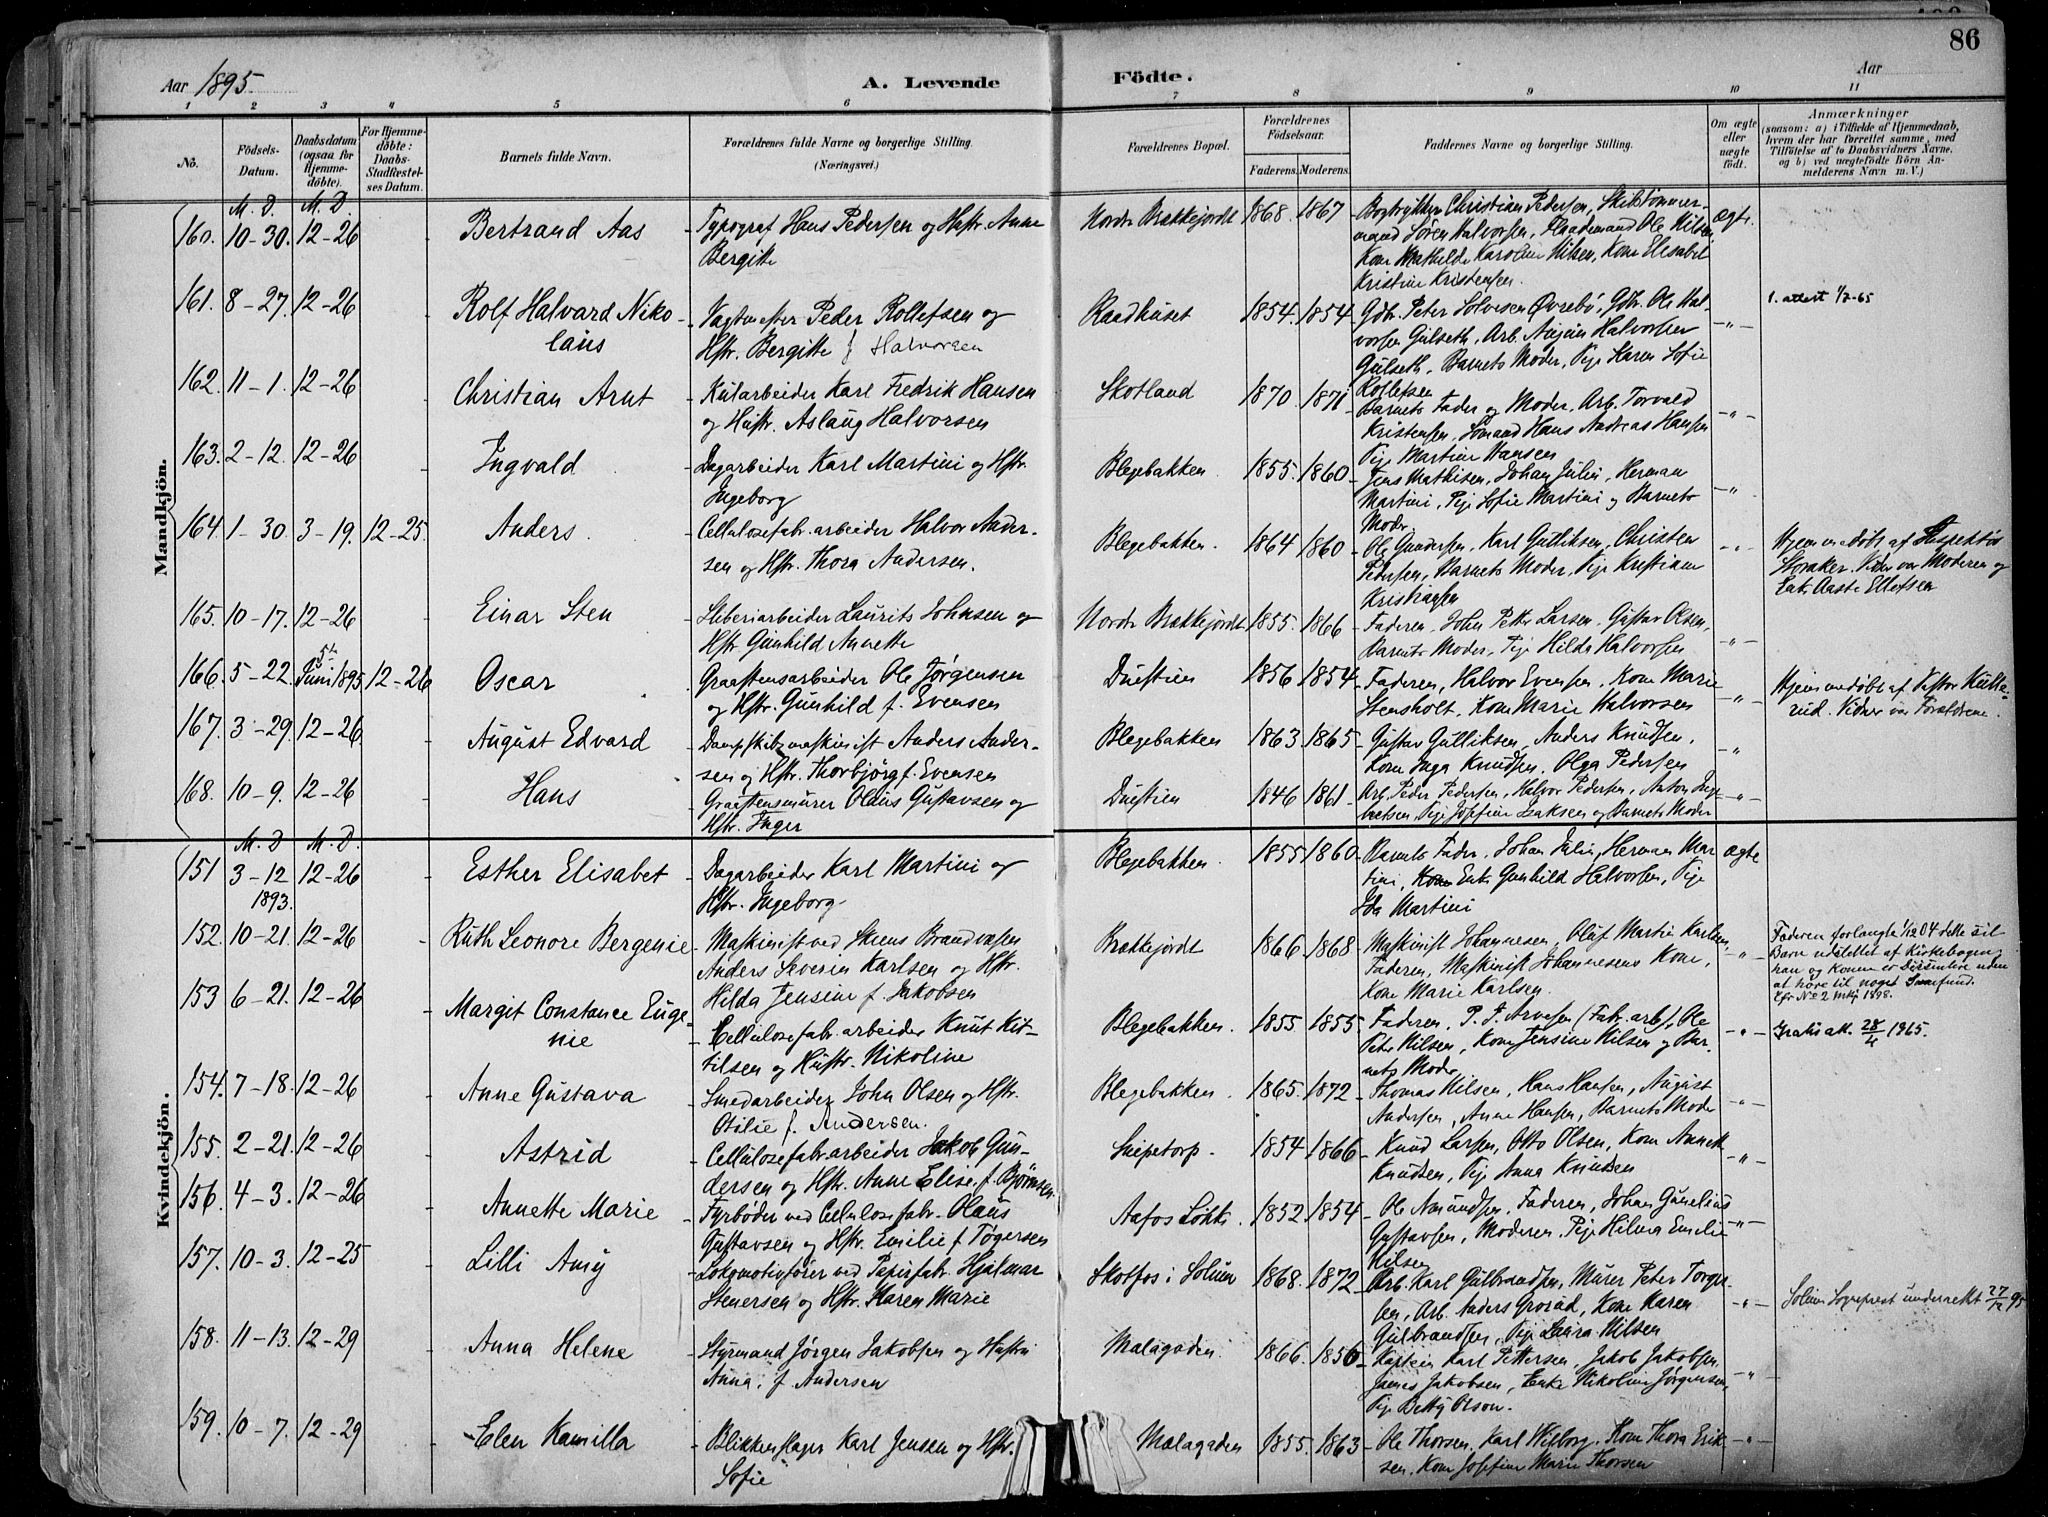 86
Aar 1895. A. Levende Födte. Aar
1 2 3 4 5 6 7 8 9 10 11
No. Födsels-Datum. Daabsdatum (ogsaa for Hjemmedöbte). For Hjemmedöbte: Daabs-Stadfæstelses Datum. Barnets fulde Navn. Forældrenes fulde Navne og borgerlige Stilling. (Næringsvei.) Forældrenes Bopæl. Forældrenes Födselsaar. Faderens. Moderens. Faddernes Navne og borgerlige Stilling. Om ægte eller uægte födt. Anmærkninger (saasom: a) i Tilfælde af Hjemmedaab, hvem der har forrettet samme, med Tilföielse af to Daabsvidners Navne, og b) ved uægtefödte Börn Anmelderens Navn m. V.)
Mandkjön.
M. D. M. D
160. 10-30. 12-26 - Bertrand Aas - Typograf Hans Pedersen og Hstr. Anne Bergitte Nordr. Brækkejordt 1868 - 1867 - Bogtrykker Christian Pedersen, Skibstømmermand Sören Halvorsen, Flaademand Ole Nilsen, Kone Mathilde Karoline Nilsen, Kone Elisabet Kristine Kristensen. ægte.
161. 8-27. 12-26 Rolf Halvard Nikolaus - Vagtmester Peder Rollefsen og Hstr. Bergitte f Halvorsen Raadhuset 1854. 1854 - Gdbr. Peter Solvesen Øvrebö, Gdbr. Ole Halvorsen Gulseth, Arb. Halvorsen Gulseth, Barnets Moder, Pige Karen Sofie Rollefsen -"- 1. attest 1/2-65
162. 11-1. 12-26 - Christian Arnt - Kularbeider Karl Fredrik Hansen og Hustr. Aslaug Halvorsen Skotland 1870. 1871 - Barnets Fader og Moder, Arb. Torvald Kristensen, Sömand Hans Andreas Hansen Pige Martine Hansen -"-
163. 2-12. 12-26 - Ingvald - Dagarbeider Karl Martini og Hstr. Ingeborg Blegebakken 1855. 1860 - Jens Mathisen, Johan Julin, Herman Martini, Pige Sofie Martini og Barnets Moder. -"-
164. 1-30. 3-19. 12-25. Anders. - Cellulosefabr.arbeider Halvor Andersen og Hstr. Thora Andersen. Blegebakken. 1864 1860 - Ole Gundersen, Karl Gulliksen, Christen Pedersen, Barnets Moder, Pige Kristiane Kristiansen -"- Hjemmedöbt af Storaker. Vidner var Moderen og Enke Aaste Ellefsen
165. 10-17. 12-26 - Einar Sten - Sliberiarbeider Laurits Johnsen og Hstr Gunhild Annette Nordr Brækkejordt 1855. 1866 - Faderen, John Petter Larsen, Gustav Olsen, Barnets Moder, Pige Hilda Halvorsen -"-
166. 5-22. 5te Juni 1895 12-26 Oscar - Graastensarbeider Ole Jørgensen og Hstr. Gunhild f. Evensen Duestien 1856 1854 - Faderen, Halvor Evensen, Kone Marie Stensholt, Kone Marie Halvorsen -"- Hjemmedöbt af Pastor Kullerud. Vidner var Forældrene.
167. 3-29. 12-26. - August Edvard - Dampskibsmaskinist Anders Andersen og Hstr. Thorbjörg f. Evensen Blegebakken 1863 1865 - Gustav Gulliksen, Anders Knudsen, Kone Inga Knudsen, Olga Pedersen "
168. 10-9. 12-26 - Hans - Graastensmurer Olaus Gustavsen og Hstr. Inger Duestien 1846 1861 - Arb. Peder Pedersen, Halvor Pedersen, Anton Ingebretsen, Pige Josefine Isaksen og Barnets Moder -"-
Kvindekjön.
M. D M. D.
151 3-12 1893. 12-26 - Esther Elisabet - Dagarbeider Karl Martini og Hstr. Ingeborg Blegebakken. 1855 1860 - Barnets Fader, Johan Julin, Herman Martini, Enke Gunhild Halvorsen, Pige Ida Martini ægte
152. 10-21. 12-26 - Ruth Leonore Bergenie - Maskinist ved Skiens Brandvæsen Anders Severin Karlsen og Hstr. Hilda Jensine f. Jakobsen Brækkejordt 1866 - 1868 - Maskinist Johannesen, Oluf Martin Karlsen, Faderen, Maskinist Johannesens Kone, Kone Marie Karlsen. -"- Faderen forlangte 1/12 04 dette sit Barn udslettet af Kirkebogen; han og Konen er Dissentere uden at höre til noget Samfund. Cfr No 2 mkj 1898.
153 6-21. 12-26 - Margit Constance Eugenie - Cellulosefabr.arbeider Knut Kittilsen og Hustr. Nikoline Blegebakken. 1855 - 1855 - Faderen, P. J. Arvesen (Fabr.arb.), Ole Peter Nilsen, Kone Jensine Nilsen og Barnets Moder -"- Gratis att. 28/4 1965.
154. 7-18. 12-26 - Anne Gustava - Smedarbeider John Olsen og Hstr. Otilie f. Andersen. Blegebakken 1865. 1872 - Thomas Nilsen, Hans Hansen, August Andersen, Anne Hansen, Barnets Moder -"-
155. 2-21. 12-26 - Astrid - Cellulosefabr.arbeider Jakob Gundersen og Hstr. Anne Elise f. Bjömsen. Snipetorp. 1854 1866 - Knud Larsen, Otto Olsen, Kone Annette Knudsen, Pige Anna Knudsen -"-
156. 4-3. 12-26 - Annette Marie - Fyrbøder ved Cellulosefabr. Olaus Gustavsen og Hstr. Emilie f Tøgersen Aafos Lökke. 1852. 1854 - Ole Amundsen, Faderen, Johan Gunelius Gustavsen, Moderen, Pige Hilma Emelie Nilsen -"-
157. 10-3. 12-25 - Lilli Amy - Lokomotivfører ved Papirfabr. Hjalmar Stenersen og Hstr. Karen Marie Skotfos i Solum 1868. 1872 - Arb. Karl Gulbrandsen, Murer Peter Torgersen, Arb. Anders Grorud, Kone Karen Gulbrandsen, Pige Laura Nilsen -"- Solum Sogneprest underrettet 27/12 95
158. 11-13. 12-29 Anna Helene - Styrmand Jørgen Jakobsen og Hustru Anna, f. Andersen Malagaden. 1866. 1856 - Kaptein Karl Pettersen, Jakob Jakobsen, Jakobsen, Enke Nikoline Jørgensen, Pige Betty Olson. -"-
159. 10-7. 12-29 - Elen Kamilla - Blikkenslager Karl Jensen og Hstr. Sofie Malagaden 1855. 1863 - Ole Thorsen, Karl Wiborg, Kone Thora Eriksen, Kone Josefine Marie Thorsen -"-